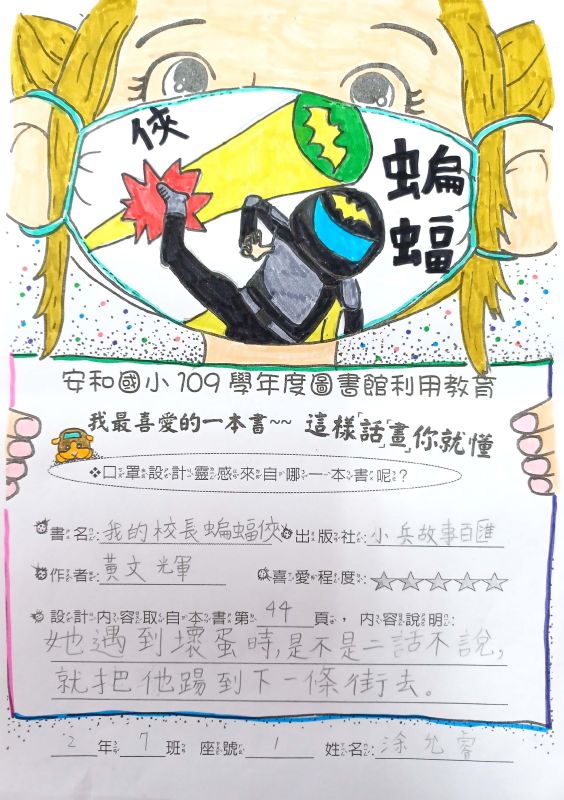 俠
蝙
蝠
安和國小109學年度圖書館利用教育
我最喜愛的一本書~~ 這樣「話」「畫」你就懂
❖口罩設計靈感來自哪一本書呢？
書名：我的校長蝙蝠俠 出版社：小兵故事百匯
作者：黃文軍 喜愛程度：☆☆☆☆☆
設計內容取自本書第44頁，內容說明：
她遇到壞蛋時，是不是二話不說，
就把他踢到下一條街去。
2年7班 座號1 姓名：涂允睿